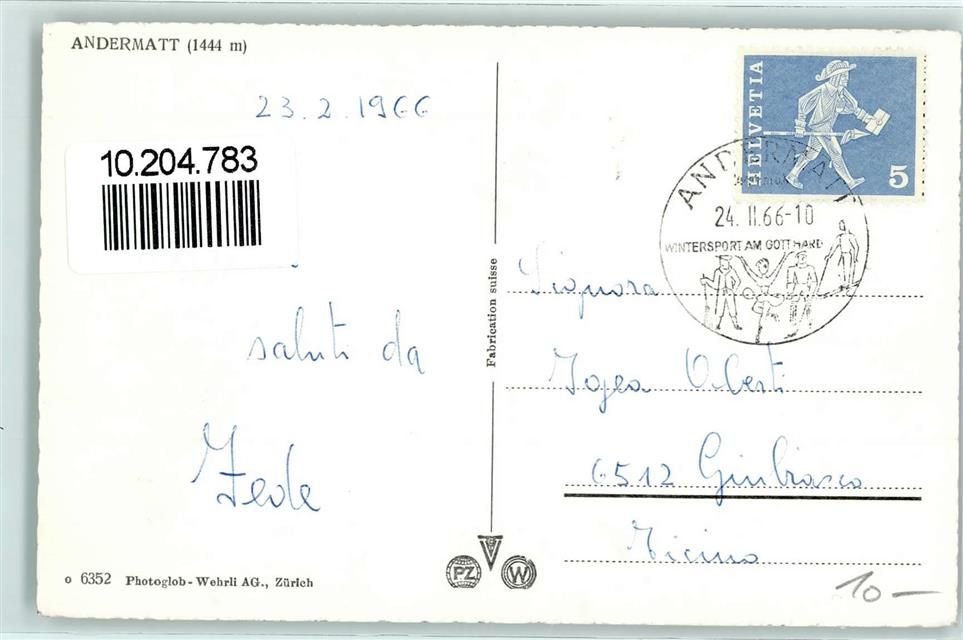 ANDERMATT (1444 m)
23.2.1966
10.204.783
saluti da
Fede
o 6352 Photoglob-Wehrli AG., Zürich
Fabrication suisse
PZ
W
HELVETIA
5
ANDERMATT
24.II.66-10
WINTERSPORT AM GOTTHARD
Signora
6512 Giubiasco
Ticino
10-